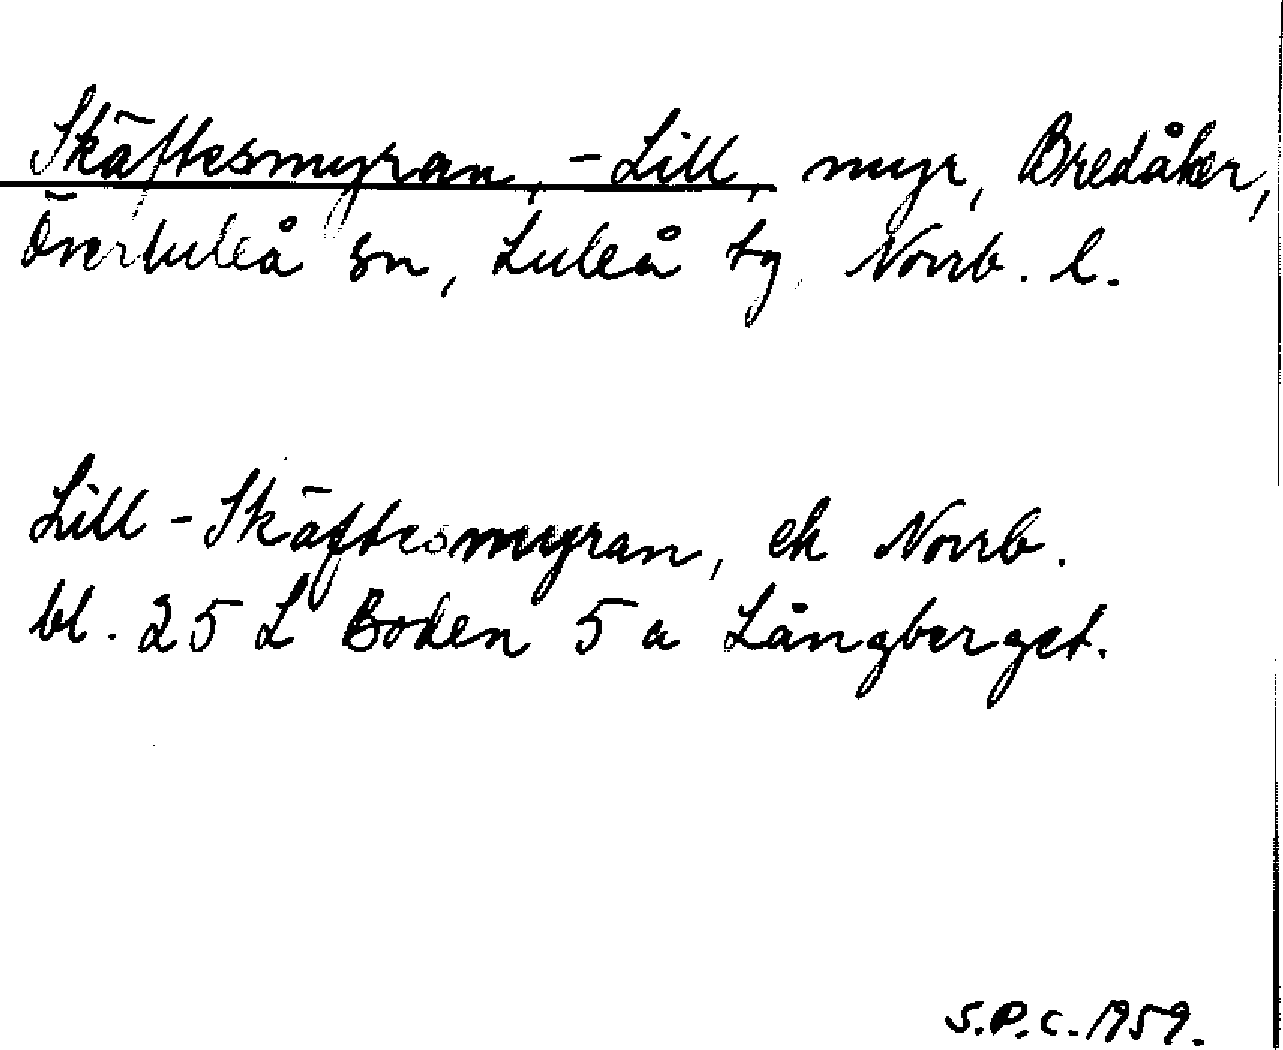 Skäftesmyran, -Lill, myr, Bredåker,
Överluleå sn, Luleå tg, Norrb. l.
Lill-Skäftesmyran, ek Norrb.
bl. 25 L Boden 5 a Långberget.
S.P.C. 1959.